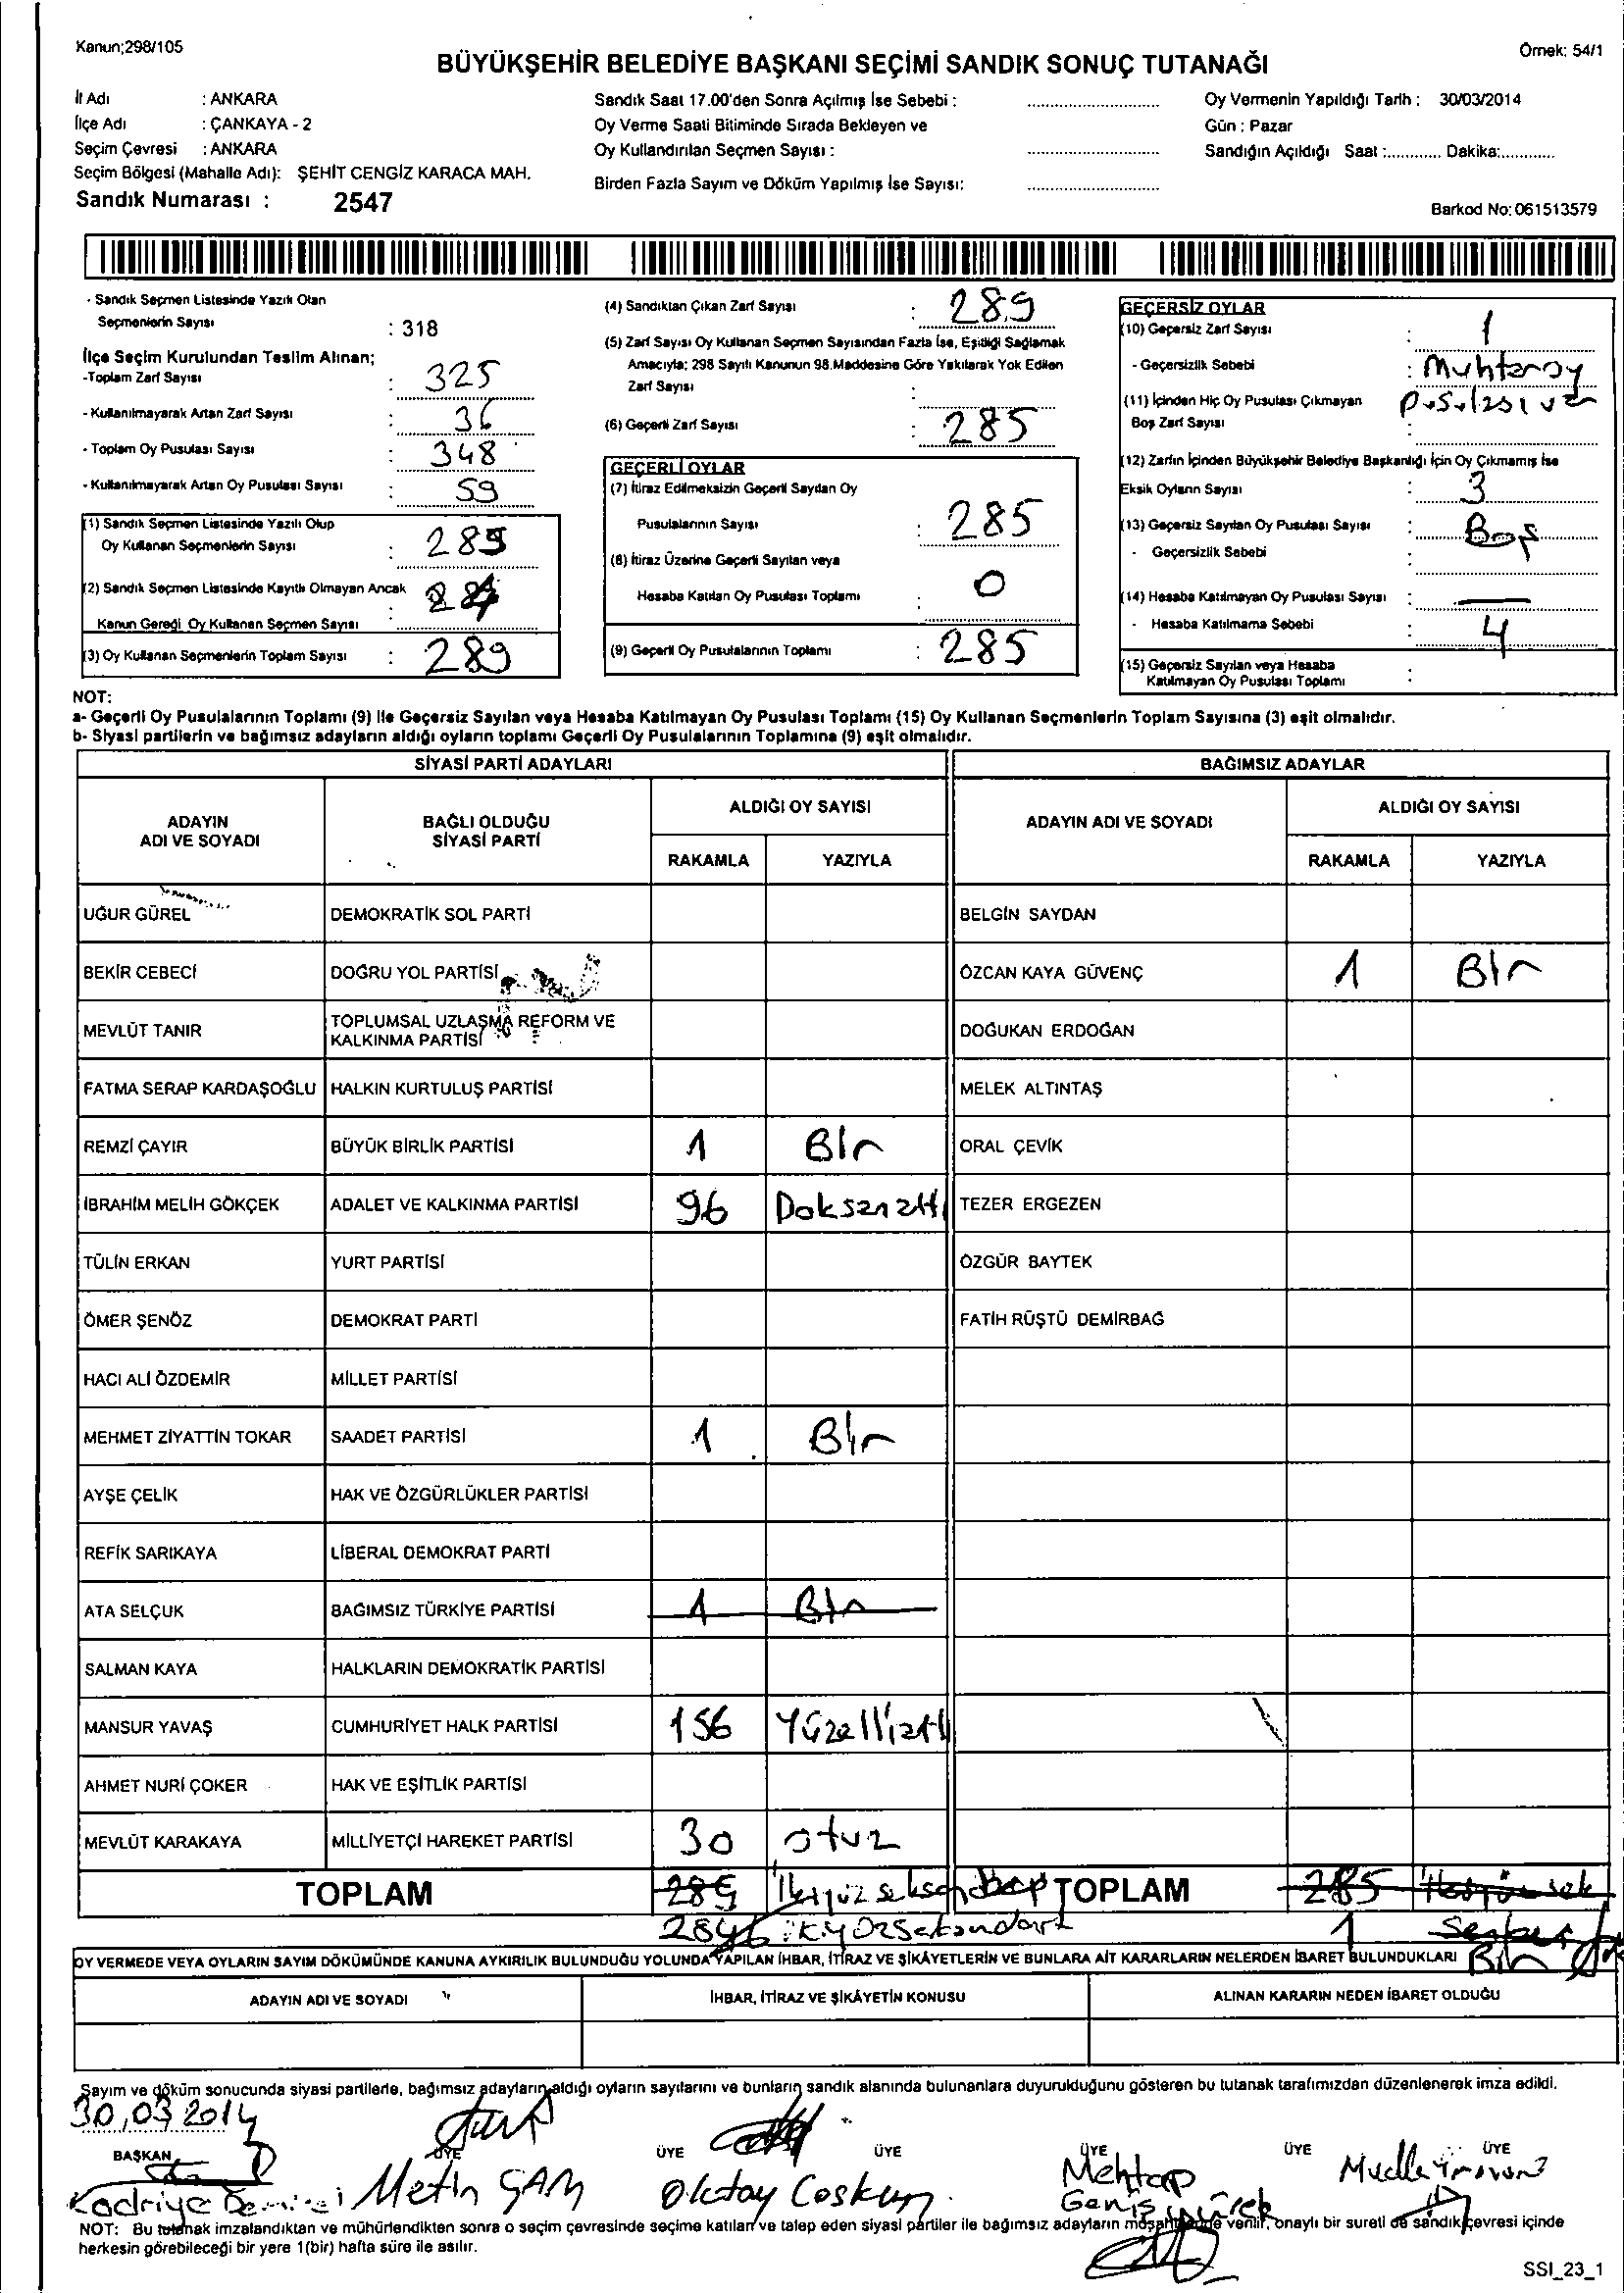 Kanun;298/105
Örnek: 54/1
BÜYÜKŞEHİR BELEDİYE BAŞKANI SEÇİMİ SANDIK SONUÇ TUTANAĞI
İl Adı : ANKARA
İlçe Adı : ÇANKAYA - 2
Seçim Çevresi : ANKARA
Seçim Bölgesi (Mahalle Adı): ŞEHİT CENGİZ KARACA MAH.
Sandık Numarası : 2547
Sandık Saat 17.00'den Sonra Açılmış İse Sebebi :
Oy Verme Saati Bitiminde Sırada Bekleyen ve
Oy Kullandırılan Seçmen Sayısı :
Birden Fazla Sayım ve Döküm Yapılmış İse Sayısı:
Oy Vermenin Yapıldığı Tarih : 30/03/2014
Gün : Pazar
Sandığın Açıldığı Saat :............ Dakika:............
Barkod No: 061513579
- Sandık Seçmen Listesinde Yazılı Olan
Seçmenlerin Sayısı : 318
İlçe Seçim Kurulundan Teslim Alınan;
-Toplam Zarf Sayısı : 325
- Kullanılmayarak Artan Zarf Sayısı : 36
- Toplam Oy Pusulası Sayısı : 348
- Kullanılmayarak Artan Oy Pusulası Sayısı : 59
(1) Sandık Seçmen Listesinde Yazılı Olup
Oy Kullanan Seçmenlerin Sayısı : 289
(2) Sandık Seçmen Listesinde Kayıtlı Olmayan Ancak
Kanun Gereği Oy Kullanan Seçmen Sayısı :
(3) Oy Kullanan Seçmenlerin Toplam Sayısı : 289
(4) Sandıktan Çıkan Zarf Sayısı : 289
(5) Zarf Sayısı Oy Kullanan Seçmen Sayısından Fazla İse, Eşitliği Sağlamak
Amacıyla; 298 Sayılı Kanunun 98.Maddesine Göre Yakılarak Yok Edilen
Zarf Sayısı :
(6) Geçerli Zarf Sayısı : 285
GEÇERLİ OYLAR
(7) İtiraz Edilmeksizin Geçerli Sayılan Oy
Pusulalarının Sayısı : 285
(8) İtiraz Üzerine Geçerli Sayılan veya
Hesaba Katılan Oy Pusulası Toplamı : 0
(9) Geçerli Oy Pusulalarının Toplamı : 285
GEÇERSİZ OYLAR
(10) Geçersiz Zarf Sayısı : 1
- Geçersizlik Sebebi : Muhtar oy
pusulası
(11) İçinden Hiç Oy Pusulası Çıkmayan
Boş Zarf Sayısı :
(12) Zarfın İçinden Büyükşehir Belediye Başkanlığı İçin Oy Çıkmamış İse
Eksik Oyların Sayısı : 3
(13) Geçersiz Sayılan Oy Pusulası Sayısı : Boş
- Geçersizlik Sebebi
(14) Hesaba Katılmayan Oy Pusulası Sayısı : —
- Hesaba Katılmama Sebebi : 4
(15) Geçersiz Sayılan veya Hesaba
Katılmayan Oy Pusulası Toplamı :
NOT:
a- Geçerli Oy Pusulalarının Toplamı (9) ile Geçersiz Sayılan veya Hesaba Katılmayan Oy Pusulası Toplamı (15) Oy Kullanan Seçmenlerin Toplam Sayısına (3) eşit olmalıdır.
b- Siyasi partilerin ve bağımsız adayların aldığı oyların toplamı Geçerli Oy Pusulalarının Toplamına (9) eşit olmalıdır.
SİYASİ PARTİ ADAYLARI BAĞIMSIZ ADAYLAR
ADAYIN ADI VE SOYADI BAĞLI OLDUĞU SİYASİ PARTİ ALDIĞI OY SAYISI ADAYIN ADI VE SOYADI ALDIĞI OY SAYISI
RAKAMLA YAZIYLA RAKAMLA YAZIYLA
UĞUR GÜREL DEMOKRATİK SOL PARTİ BELGİN SAYDAN
BEKİR CEBECİ DOĞRU YOL PARTİSİ ÖZCAN KAYA GÜVENÇ 1 Bir
MEVLÜT TANIR TOPLUMSAL UZLAŞMA REFORM VE KALKINMA PARTİSİ DOĞUKAN ERDOĞAN
FATMA SERAP KARDAŞOĞLU HALKIN KURTULUŞ PARTİSİ MELEK ALTINTAŞ
REMZİ ÇAYIR BÜYÜK BİRLİK PARTİSİ 1 Bir ORAL ÇEVİK
İBRAHİM MELİH GÖKÇEK ADALET VE KALKINMA PARTİSİ 96 Doksanaltı TEZER ERGEZEN
TÜLİN ERKAN YURT PARTİSİ ÖZGÜR BAYTEK
ÖMER ŞENÖZ DEMOKRAT PARTİ FATİH RÜŞTÜ DEMİRBAĞ
HACI ALİ ÖZDEMİR MİLLET PARTİSİ
MEHMET ZİYATTİN TOKAR SAADET PARTİSİ 1 Bir
AYŞE ÇELİK HAK VE ÖZGÜRLÜKLER PARTİSİ
REFİK SARIKAYA LİBERAL DEMOKRAT PARTİ
ATA SELÇUK BAĞIMSIZ TÜRKİYE PARTİSİ 1 Bir
SALMAN KAYA HALKLARIN DEMOKRATİK PARTİSİ
MANSUR YAVAŞ CUMHURİYET HALK PARTİSİ 156 Yüzellialtı
AHMET NURİ ÇOKER HAK VE EŞİTLİK PARTİSİ
MEVLÜT KARAKAYA MİLLİYETÇİ HAREKET PARTİSİ 30 otuz
TOPLAM 285 TOPLAM 285
284 1
Bir
OY VERMEDE VEYA OYLARIN SAYIM DÖKÜMÜNDE KANUNA AYKIRILIK BULUNDUĞU YOLUNDA YAPILAN İHBAR, İTİRAZ VE ŞİKÂYETLERİN VE BUNLARA AİT KARARLARIN NELERDEN İBARET BULUNDUKLARI
ADAYIN ADI VE SOYADI İHBAR, İTİRAZ VE ŞİKÂYETİN KONUSU ALINAN KARARIN NEDEN İBARET OLDUĞU
Sayım ve döküm sonucunda siyasi partilerle, bağımsız adayların aldığı oyların sayılarını ve bunların sandık alanında bulunanlara duyurukduğunu gösteren bu tutanak tarafımızdan düzenlenerek imza edildi.
30,03 2014
BAŞKAN ÜYE ÜYE ÜYE ÜYE ÜYE ÜYE
Kadriye Metin ÇAM Oktay Coşkun Mehtap
Geniş
NOT: Bu tutanak imzalandıktan ve mühürlendikten sonra o seçim çevresinde seçime katılan ve talep eden siyasi partiler ile bağımsız adayların müşahitlerine verilir, onaylı bir sureti de sandık çevresi içinde
herkesin görebileceği bir yere 1(bir) hafta süre ile asılır.
SSI_23_1